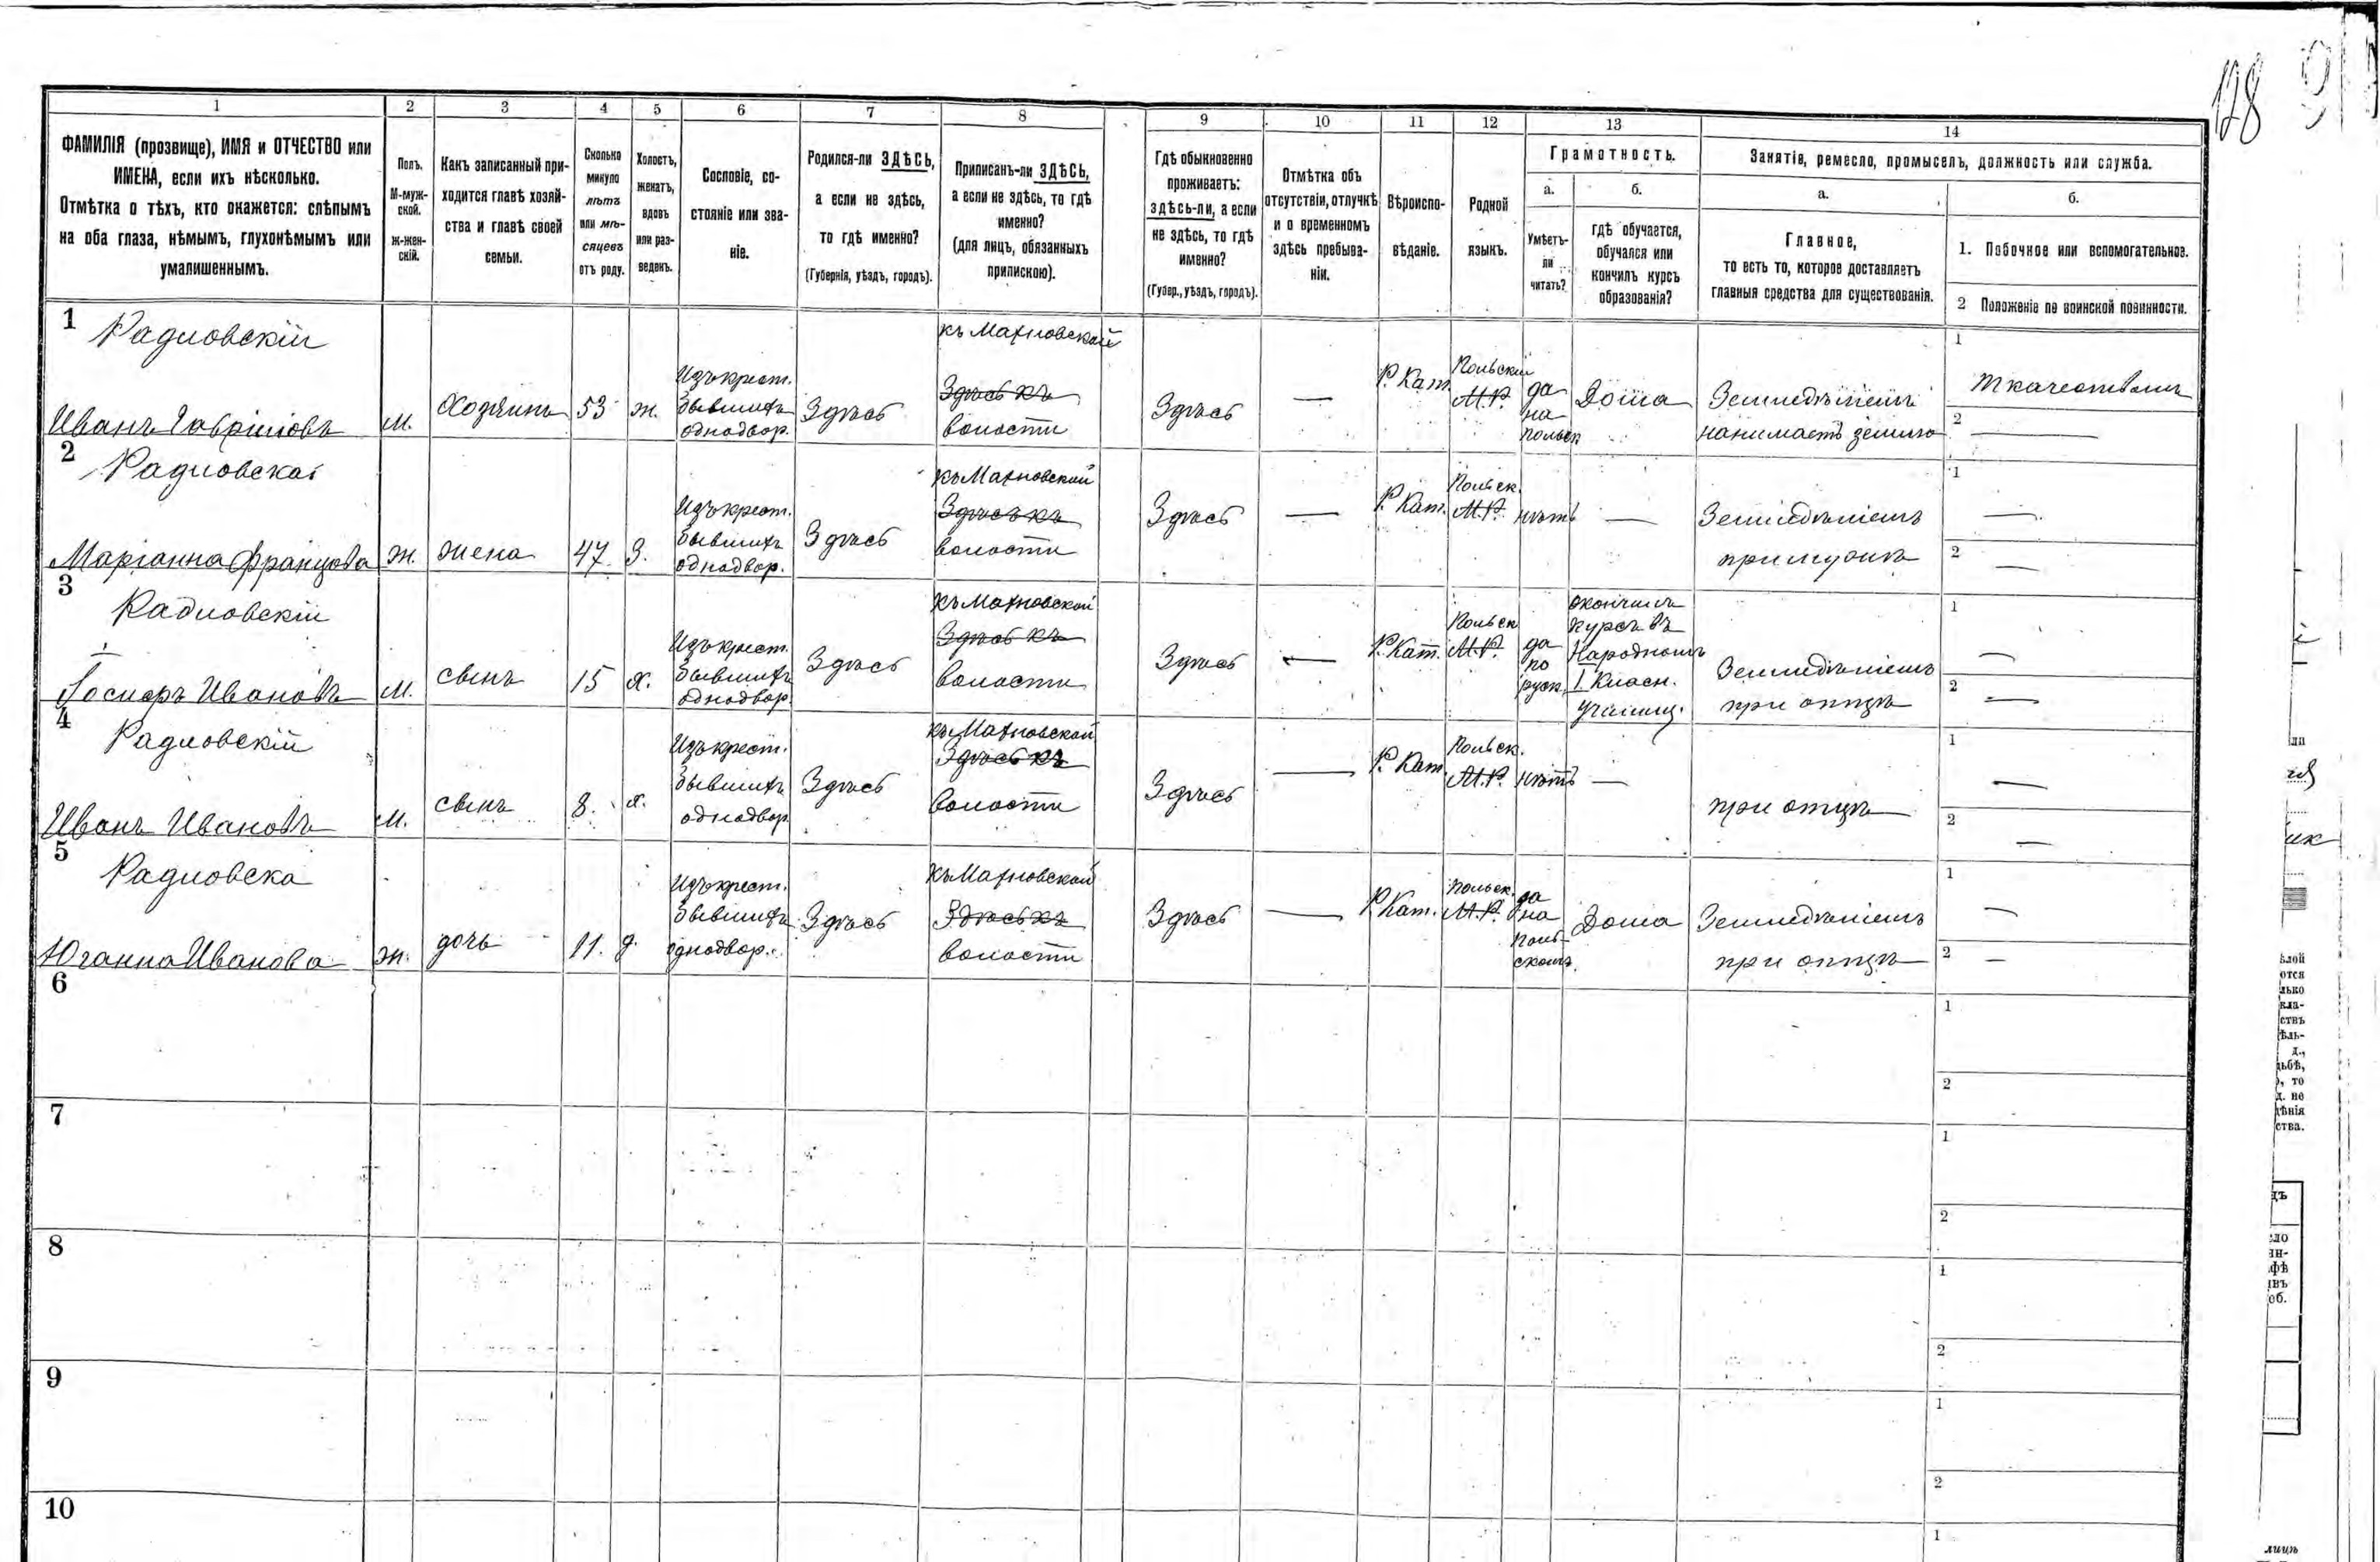 128 9
1 2 3 4 5 6 7 8 9 10 11 12 13 14
ФАМИЛІЯ (прозвище), ИМЯ и ОТЧЕСТВО или
ИМЕНА, если ихъ нѣсколько.
Отмѣтка о тѣхъ, кто окажется: слѣпымъ
на оба глаза, нѣмымъ, глухонѣмымъ или
умалишеннымъ.
Полъ.
М-муж-
ской.
ж-жен-
скій.
Какъ записанный при-
ходится главѣ хозяй-
ства и главѣ своей
семьи.
Сколько
минуло
лѣтъ
или мѣ-
сяцевъ
отъ роду.
Холостъ,
женатъ,
вдовъ
или раз-
веденъ.
Сословіе, со-
стояніе или зва-
ніе.
Родился-ли ЗДѢСЬ,
а если не здѣсь,
то гдѣ именно?
(Губернія, уѣздъ, городъ).
Приписанъ-ли ЗДѢСЬ,
а если не здѣсь, то гдѣ
именно?
(для лицъ, обязанныхъ
припискою).
Гдѣ обыкновенно
проживаетъ:
здѣсь-ли, а если
не здѣсь, то гдѣ
именно?
(Губер., уѣздъ, городъ).
Отмѣтка объ
отсутствіи, отлучкѣ
и о временномъ
здѣсь пребыва-
ніи.
Вѣроиспо-
вѣданіе.
Родной
языкъ.
Грамотность.
а.
Умѣетъ-
ли
читать?
б.
гдѣ обучается,
обучался или
кончилъ курсъ
образованія?
Занятія, ремесло, промыселъ, должность или служба.
а.
Главное,
то есть то, которое доставляетъ
главныя средства для существованія.
б.
1. Побочное или вспомогательное.
2 Положеніе по воинской повинности.
1
Радловскій
Иванъ Гавриловъ
м.
Хозяинъ
53
ж.
Изъ крест.
бывшихъ
однодвор.
Здѣсь
къ Махновской
Здѣсь къ
волости
Здѣсь
—
Р. Кат.
Польскій
М.Р.
да
на
польск
Дома
Земледѣліемъ
нанимаетъ землю
1
Ткачествомъ
2 —
2
Радловская
Маріанна Францова
ж.
жена
47
З.
Изъ крест.
бывшихъ
однодвор.
Здѣсь
къ Махновской
Здѣсь къ
волости
Здѣсь
—
Р. Кат.
Польск.
М.Р.
нѣтъ
—
Земледѣліемъ
при мужѣ
1 —
2 —
3
Радловскій
Госперъ Ивановъ
м.
сынъ
15
х.
Изъ крест.
бывшихъ
однодвор.
Здѣсь
къ Махновской
Здѣсь къ
волости
Здѣсь
—
Р. Кат.
Польск
М.Р.
да
по
руск.
окончилъ
курсъ въ
Народномъ
I Класн.
училищ.
Земледѣліемъ
при отцѣ
1 —
2 —
4
Радловскій
Иванъ Ивановъ
м.
сынъ
8.
х.
Изъ крест.
бывшихъ
однодвор.
Здѣсь
къ Махновской
Здѣсь къ
волости
Здѣсь
—
Р. Кат.
Польск.
М.Р.
нѣтъ
—
при отцѣ
1 —
2 —
5
Радловска
Юганна Иванова
ж.
дочь
11.
д.
Изъ крест.
бывшихъ
однодвор.
Здѣсь
къ Махновской
Здѣсь къ
волости
Здѣсь
—
Р. Кат.
Польск.
М.Р.
да
на
поль-
скомъ.
Дома
Земледѣліемъ
при отцѣ
1 —
2 —
6
1
2
7
1
2
8
1
2
9
1
2
10
1